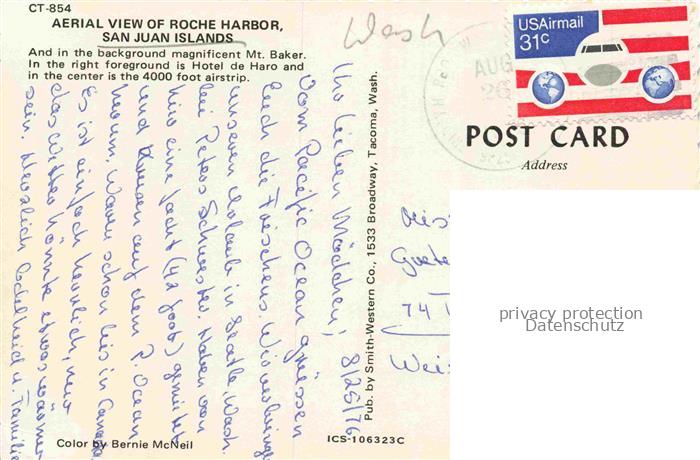 CT-854
AERIAL VIEW OF ROCHE HARBOR,
SAN JUAN ISLANDS
And in the background magnificent Mt. Baker.
In the right foreground is Hotel de Haro and
in the center is the 4000 foot airstrip.
Wash
USAirmail
31c
AUG
26
POST CARD
Address
8/25/76
Ihr lieben Mädchen!
Vom Pacific Ocean grüssen
Euch die Frischens. Wir verbringen
unseren Urlaub in Seattle, Wash.
bei Peters Schwester. Haben von
hier eine Jacht (42 foot) gemietet
und kreuzen auf dem P. Ocean
herum. Waren schon bis in Canada
Es ist einfach herrlich, nur
das Wetter könnte etwas wärmer
sein. Herzlich Adelheid u. Familie
Pub. by Smith-Western Co., 1533 Broadway, Tacoma, Wash.
74
privacy protection
Datenschutz
Color by Bernie McNeil
ICS-106323C